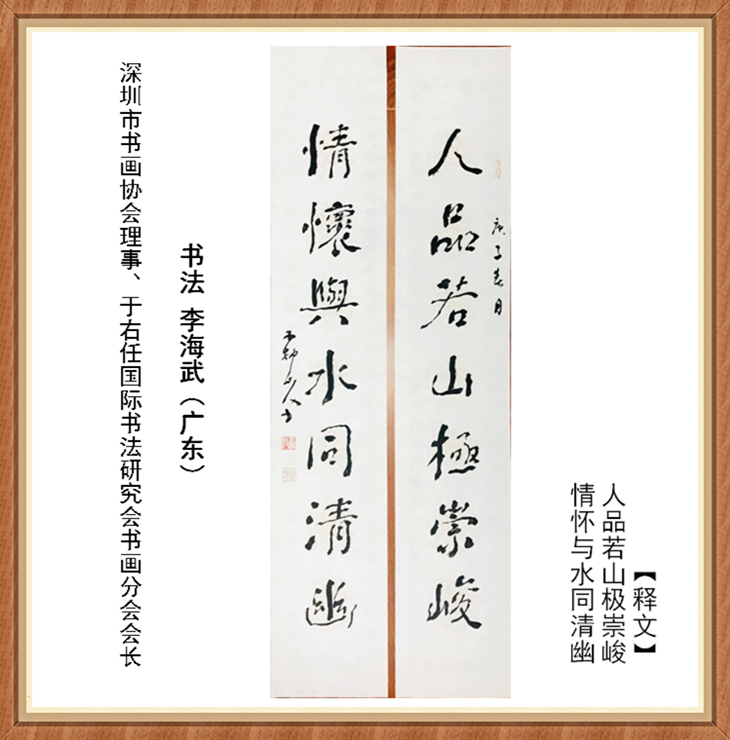 【释文】
人品若山极崇峻
情怀与水同清幽
庚子春月
人品若山極崇峻
情懷與水同清幽
书法 李海武（广东）
深圳市书画协会理事、于右任国际书法研究会书画分会会长